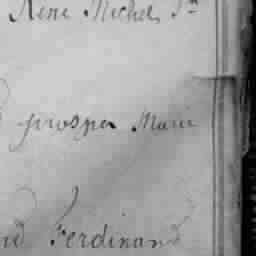 René Michel, J.n
prosper Marie
Ferdinand